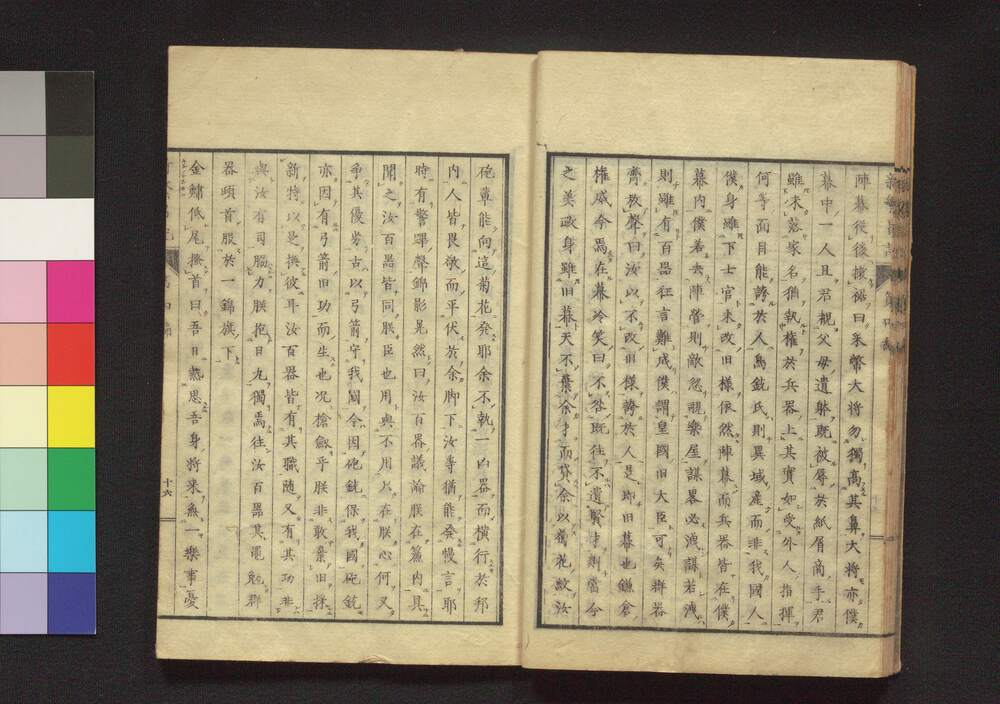 陣幕從後撥裾曰采幣大将勿獨高其鼻大将亦僕
幕中一人且君襯父母遺躰既被辱於紙屑商手君
雖未落家名猶執權於兵器上其實如受外人指揮
何等面目能誇於人鳥銃氏則異域産而非我國人
僕身雖下士官未改旧様依然陣幕而兵器皆在僕
幕内僕若去陣營則敵忽視樂屋謀畧必洩謀若洩
則雖有百器狂言難成僕謂皇國旧大臣可矣群器
齊放聲曰汝以不改旧様誇於人是即旧幕也鎌倉
權威今焉在幕冷笑曰不咎既往不遺賢才則當今
之美政身雖旧幕天不棄余才而貸余以菊花紋汝
砲軰能向這菊花発耶余不執一凶器而横行於邦
内人皆畏敬而平伏於余脚下汝等猶能発慢言耶
時有警蹕聲錦影晃然曰汝百器議論朕在簾内具
聞之汝百器皆同朕臣也用與不用只在朕心何又
爭其優劣古以弓箭守我國今因砲銃保我國砲銃
亦因有弓箭旧功而生也况槍劔乎朕非敢棄旧採
新特以是撫彼耳汝百器皆有其職随又有其功非
與汝有司脇力朕抱日丸獨焉往汝百器其黽勉群
器頓首服於一錦旗下
金鯱低尾撫首曰吾日熟思吾身将来無一樂事憂
十六